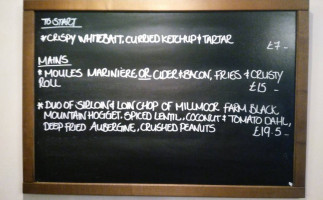 TO START
*CRISPY WHITEBAIT, CURRIED KETCHUP & TARTAR
£7-
MAINS
* MOULES MARINIÈRE OR CIDER & BACON, FRIES & CRUSTY
ROLL £15 -
* DUO OF SIRLOIN & LOIN CHOP OF MILLMOOR FARM BLACK
MOUNTAIN HOGGET, SPICED LENTIL, COCONUT & TOMATO DAHL,
DEEP FRIED AUBERGINE, CRUSHED PEANUTS £19.5-